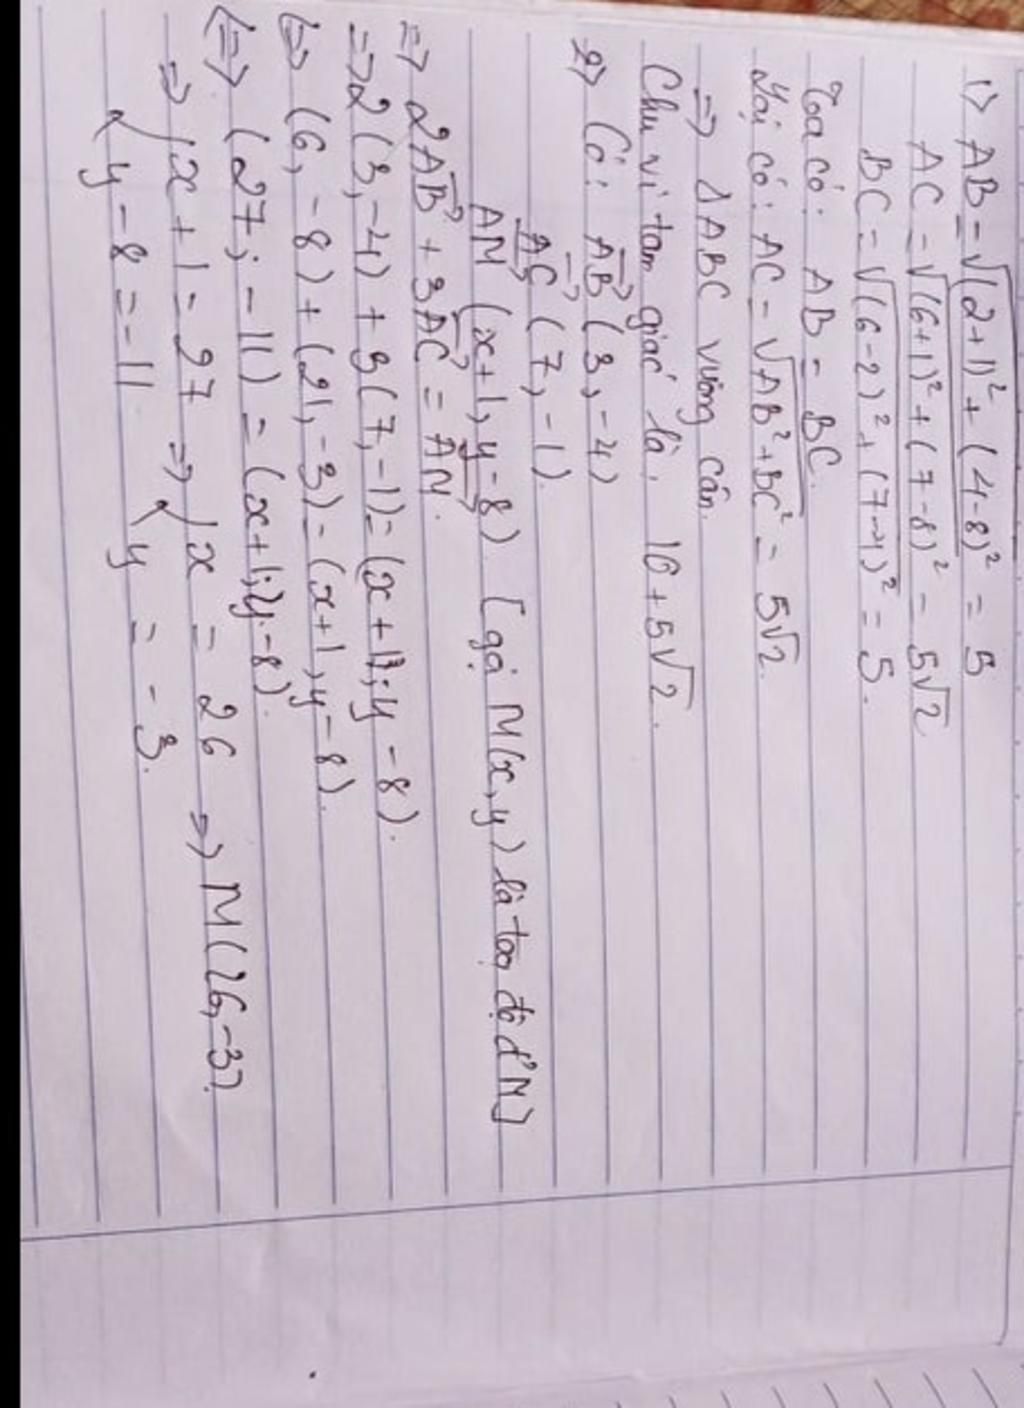 1) AB = √(2+1)² + (4-8)² = 5
AC = √(6+1)² + (7-8)² = 5√2
BC = √(6-2)² + (7-4)² = 5.
Toa có: AB = BC.
Lại có: AC = √AB²+BC² = 5√2.
=> ΔABC vuông cân.
Chu vi tam giác là: 10+5√2.
2) Có: AB→(3,-4)
AC→(7,-1).
AM→(x+1,y-8). [gọi M(x,y) là toạ độ đ' M]
=> 2AB→ + 3AC→ = AM→.
=> 2(3,-4) + 3(7,-1) = (x+1);y-8).
<=> (6,-8) + (21,-3) = (x+1,y-8).
<=> (27;-11) = (x+1;y-8).
=> { x+1 = 27 => { x = 26 => M(26,-3).
y-8 = -11 y = -3.